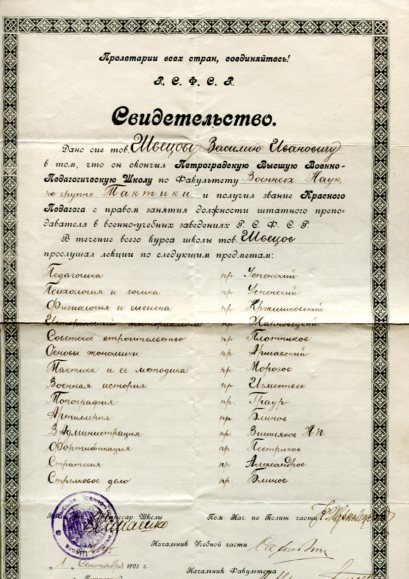 Пролетарии всех стран, соединяйтесь!
Р. С. Ф. С. Р.
Свидетельство.
Дано сие тов. Швецову Василию Ивановичу
в том, что он окончил Петроградскую Высшую Военно-
Педагогическую Школу по Факультету Военных Наук
по группе Тактики и получил звание Красного
Педагога с правом занятия должности штатного препо-
давателя в военно-учебных заведениях Р. С. Ф. С. Р.
В течение всего курса школы тов. Швецов
прослушал лекции по следующим предметам:
Педагогика пр. Успенский
Психология и логика пр. Успенский
Физиология и гигиена пр. Кржишковский
Исторический материализм пр. Жарновецкий
Советское строительство пр. Плотников
Основы экономики пр.
Тактика и ее методика пр. Морозов
Военная история пр. Изместьев
Топография пр.
Артиллерия пр. Блинов
В. Администрация пр. Вишняков Н П.
Фортификация пр.
Стратегия пр. Александров
Стрелковое дело пр. Блинов
Школы
Пом. Нач. по Полит части
Начальник Учебной части
1 Сентября 1923
Начальник Факультета